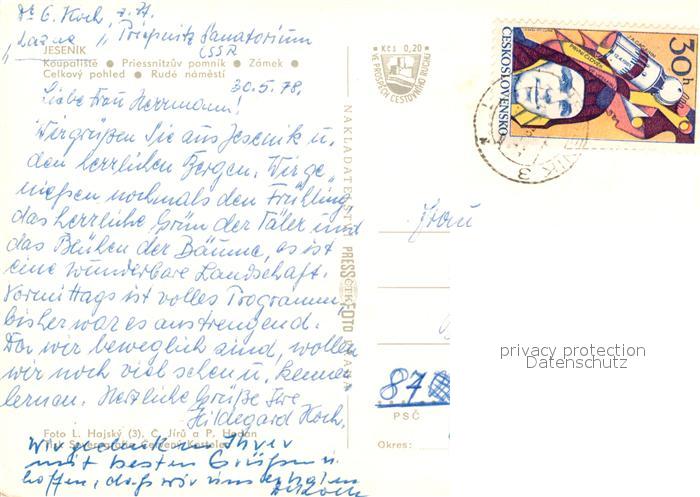 Dr G. Koch, z. Zt.
"Lázně" "Prießnitz Sanatorium
JESENÍK ČSSR
Koupaliště ● Priessnitzův pomník ● Zámek ●
Celkový pohled ● Rudé náměstí
30.5.78,
Liebe Frau Herrmann!
Wir grüßen Sie aus Jesenik u.
den herrlichen Bergen. Wir ge-
nießen nochmals den Frühling,
das herrliche Grün der Täler und
das Blühen der Bäume, es ist
eine wunderbare Landschaft.
Vormittags ist volles Programm,
bisher war es anstrengend.
Da wir beweglich sind, wollen
wir noch viel sehen u. kennen
lernen. Herzliche Grüße Ihre
Hildegard Koch,
Foto L. Hajský (3), Č. Jírů a P. Hodan
Tisk Severografia Červený Kostelec
Wir gedenken Ihrer
mit besten Grüßen u.
hoffen, daß wir uns erholen
NAKLADATELSTVÍ PRESSFOTO PRAHA
ČTK
Kčs 0,20
VE PROSPĚCH CESTOVNÍHO RUCHU
ČESKOSLOVENSKO
30 h
J.A. GAGARIN
PRVNÍ ČLOVĚK
NÍK 3
Frau
87
PSČ
Okres:
privacy protection
Datenschutz